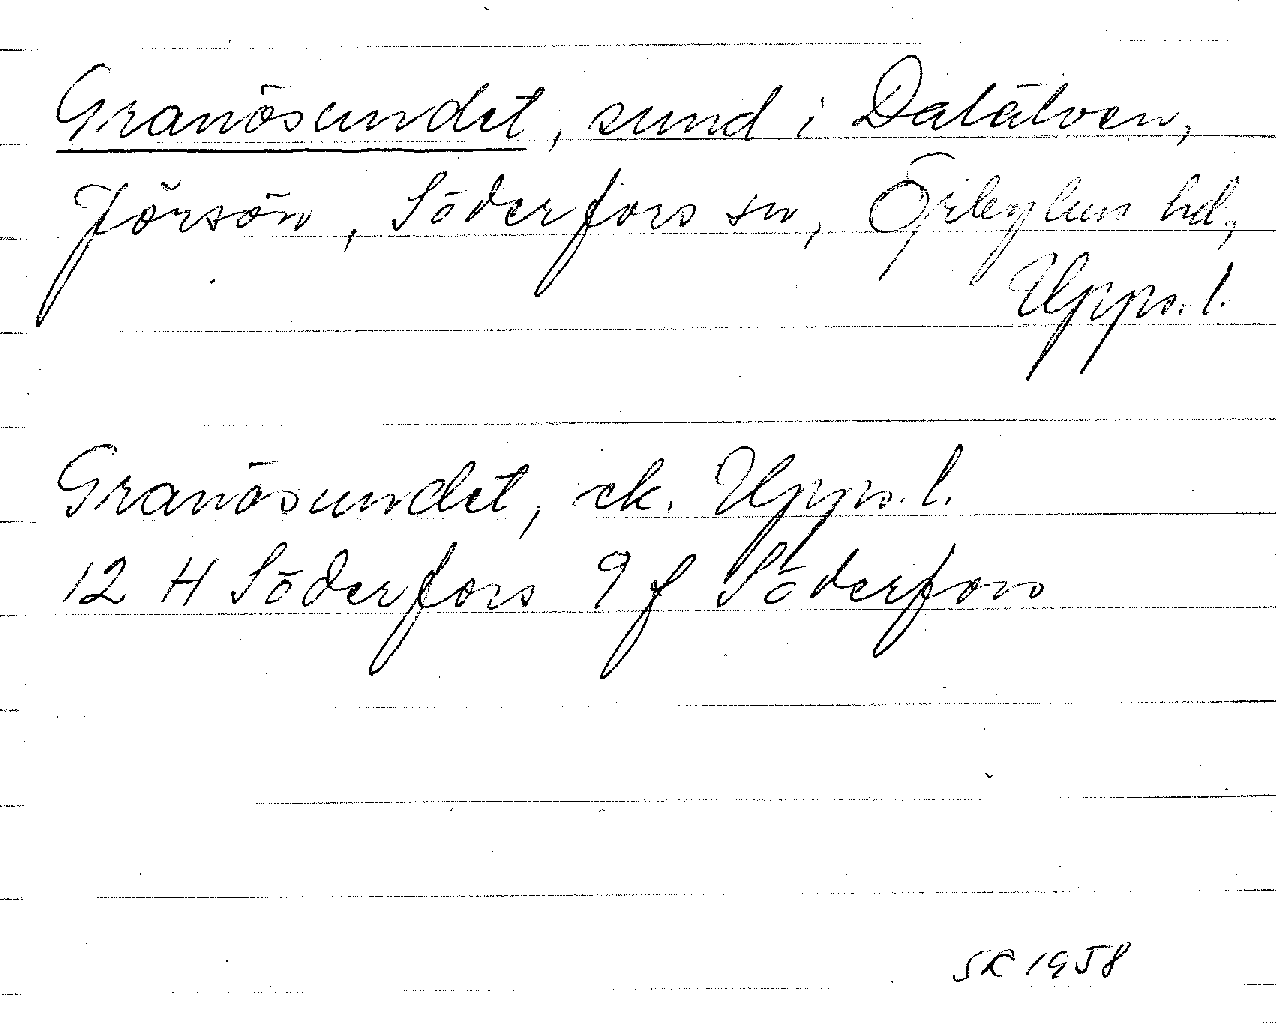 Granösundet, sund i Dalälven,
Jörsön, Söderfors sn, Örbyhus hd,
Upps. l.
Granösundet, ek. Upps. l.
12 H Söderfors 9 f Söderfors
SR 1958